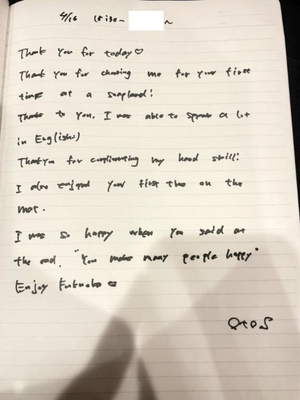 4/16 18:30~ ~
Thank you for today♡
Thank you for choosing me for your first
time at a soapland!
Thanks to you, I was able to speak a lot
in English:)
Thank you for complimenting my hand skill!
I also enjoyed your first time on the
mat.
I was so happy when you said at
the end, "You make many people happy"
Enjoy Fukuoka